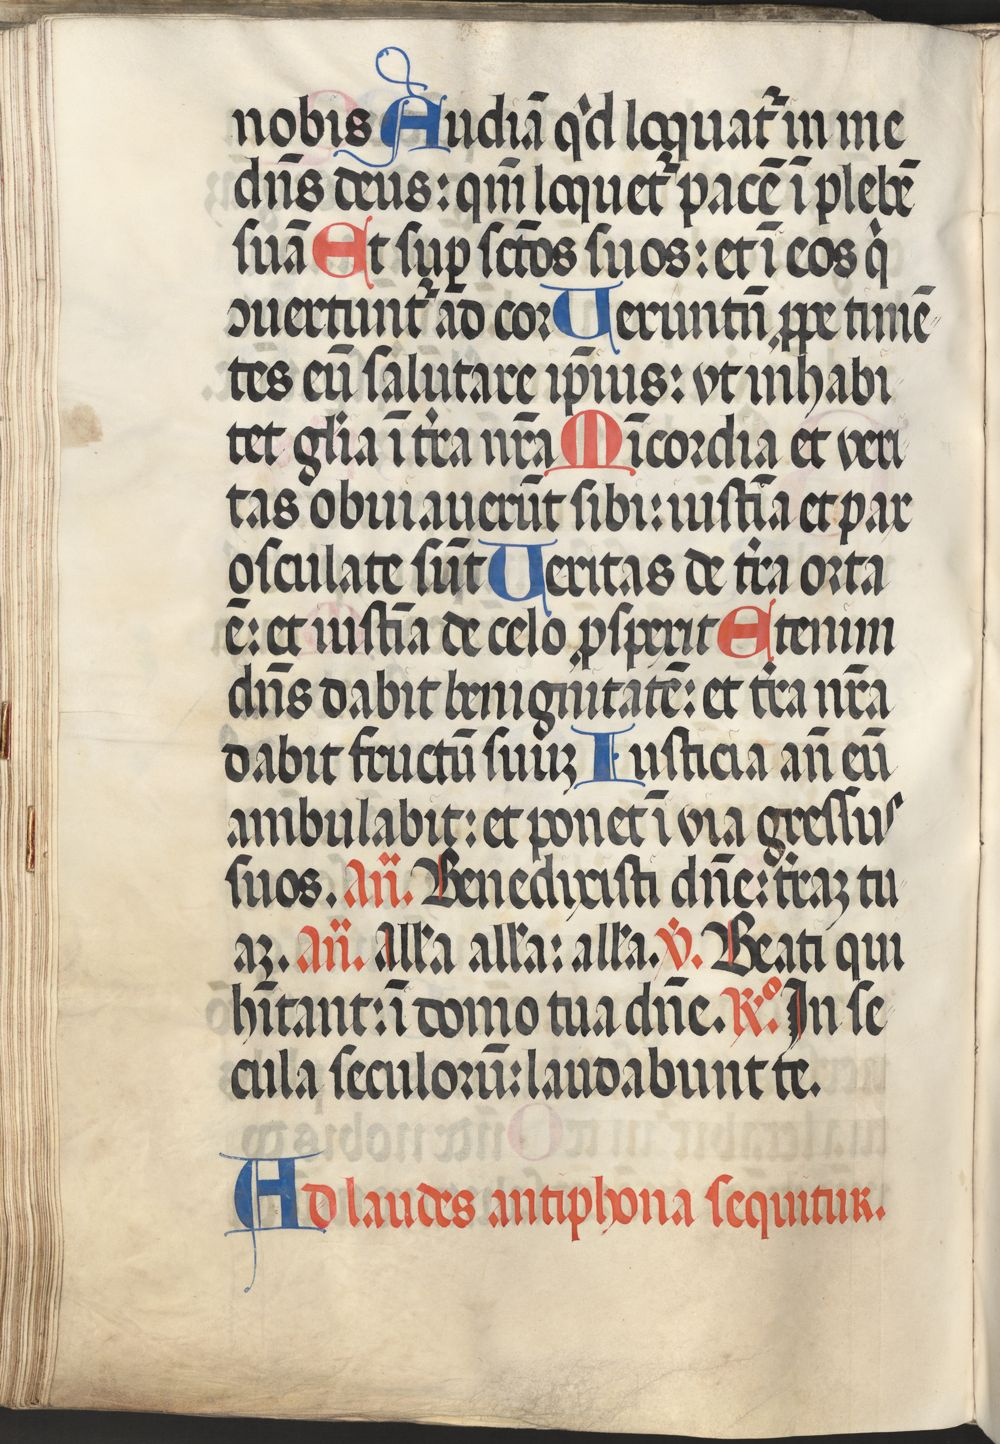 nobis Audiā qͥd loquat᷑ in me
dn̄s deus: qm̄ loquet᷑ pacē ī plebē
suā Et suꝑ sctōs suos: et ī eos qͥ
ꝯuertunt᷑ ad cor Ueruntn̄ ꝓpe timē
tes eū salutare ip̄ius: vt inhabi
tet gl̄ia ī tr̄a nr̄a Mīcordia et veri
tas obuiauerūt sibi: iustīa et pax
osculate sūt Ueritas de tr̄a orta
ē: et iustīa de celo ꝓsperit Etenim
dn̄s dabit benignitatē: et tr̄a nr̄a
dabit fructū suuꝫ Iusticia an̄ eū
ambulabit: et ponet ī via gressus
suos. An̄. Benedixisti dn̄e: tr̄aꝫ tu
aꝫ. An̄. All̄a all̄a: all̄a. V̊. Beati qui
hītant: ī domo tua dn̄e. R̊. In se
cula seculorū: laudabunt te.
Ad laudes antiphona sequitur.